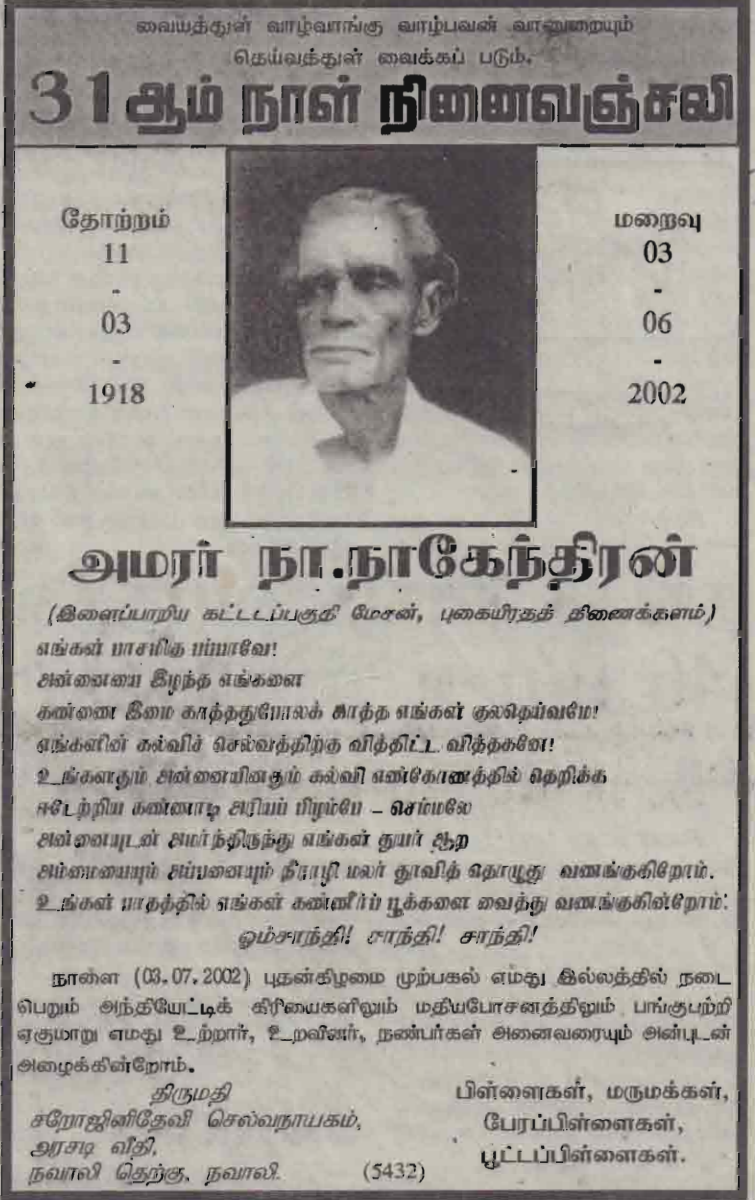 வையத்துள் வாழ்வாங்கு வாழ்பவன் வானுறையும்
தெய்வத்துள் வைக்கப் படும்.
31 ஆம் நாள் நினைவஞ்சலி
தோற்றம்
11
-
03
-
1918
மறைவு
03
-
06
-
2002
அமரர் நா.நாகேந்திரன்
(இளைப்பாறிய கட்டடப்பகுதி மேசன், புகையிரதத் திணைக்களம்)
எங்கள் பாசமிகு பப்பாவே!
அன்னையை இழந்த எங்களை
கண்ணை இமை காத்ததுபோலக் காத்த எங்கள் குலதெய்வமே!
எங்களின் கல்விச் செல்வத்திற்கு வித்திட்ட வித்தகனே!
உங்களதும் அன்னையினதும் கல்வி எண்கோணத்தில் தெறிக்க
ஈடேற்றிய கண்ணாடி அரியப் பிழம்பே – செம்மலே
அன்னையுடன் அமர்ந்திருந்து எங்கள் துயர் ஆற
அம்மையையும் அப்பனையும் நீராழி மலர் தூவித் தொழுது வணங்குகிறோம்.
உங்கள் பாதத்தில் எங்கள் கண்ணீர்ப் பூக்களை வைத்து வணங்குகின்றோம்!
ஓம்சாந்தி! சாந்தி! சாந்தி!
நாளை (03.07.2002) புதன்கிழமை முற்பகல் எமது இல்லத்தில் நடை
பெறும் அந்தியேட்டிக் கிரியைகளிலும் மதியபோசனத்திலும் பங்குபற்றி
ஏகுமாறு எமது உற்றார், உறவினர், நண்பர்கள் அனைவரையும் அன்புடன்
அழைக்கின்றோம்.
திருமதி
சறோஜினிதேவி செல்வநாயகம்,
அரசடி வீதி,
நவாலி தெற்கு, நவாலி. (5432)
பிள்ளைகள், மருமக்கள்,
பேரப்பிள்ளைகள்,
பூட்டப்பிள்ளைகள்.